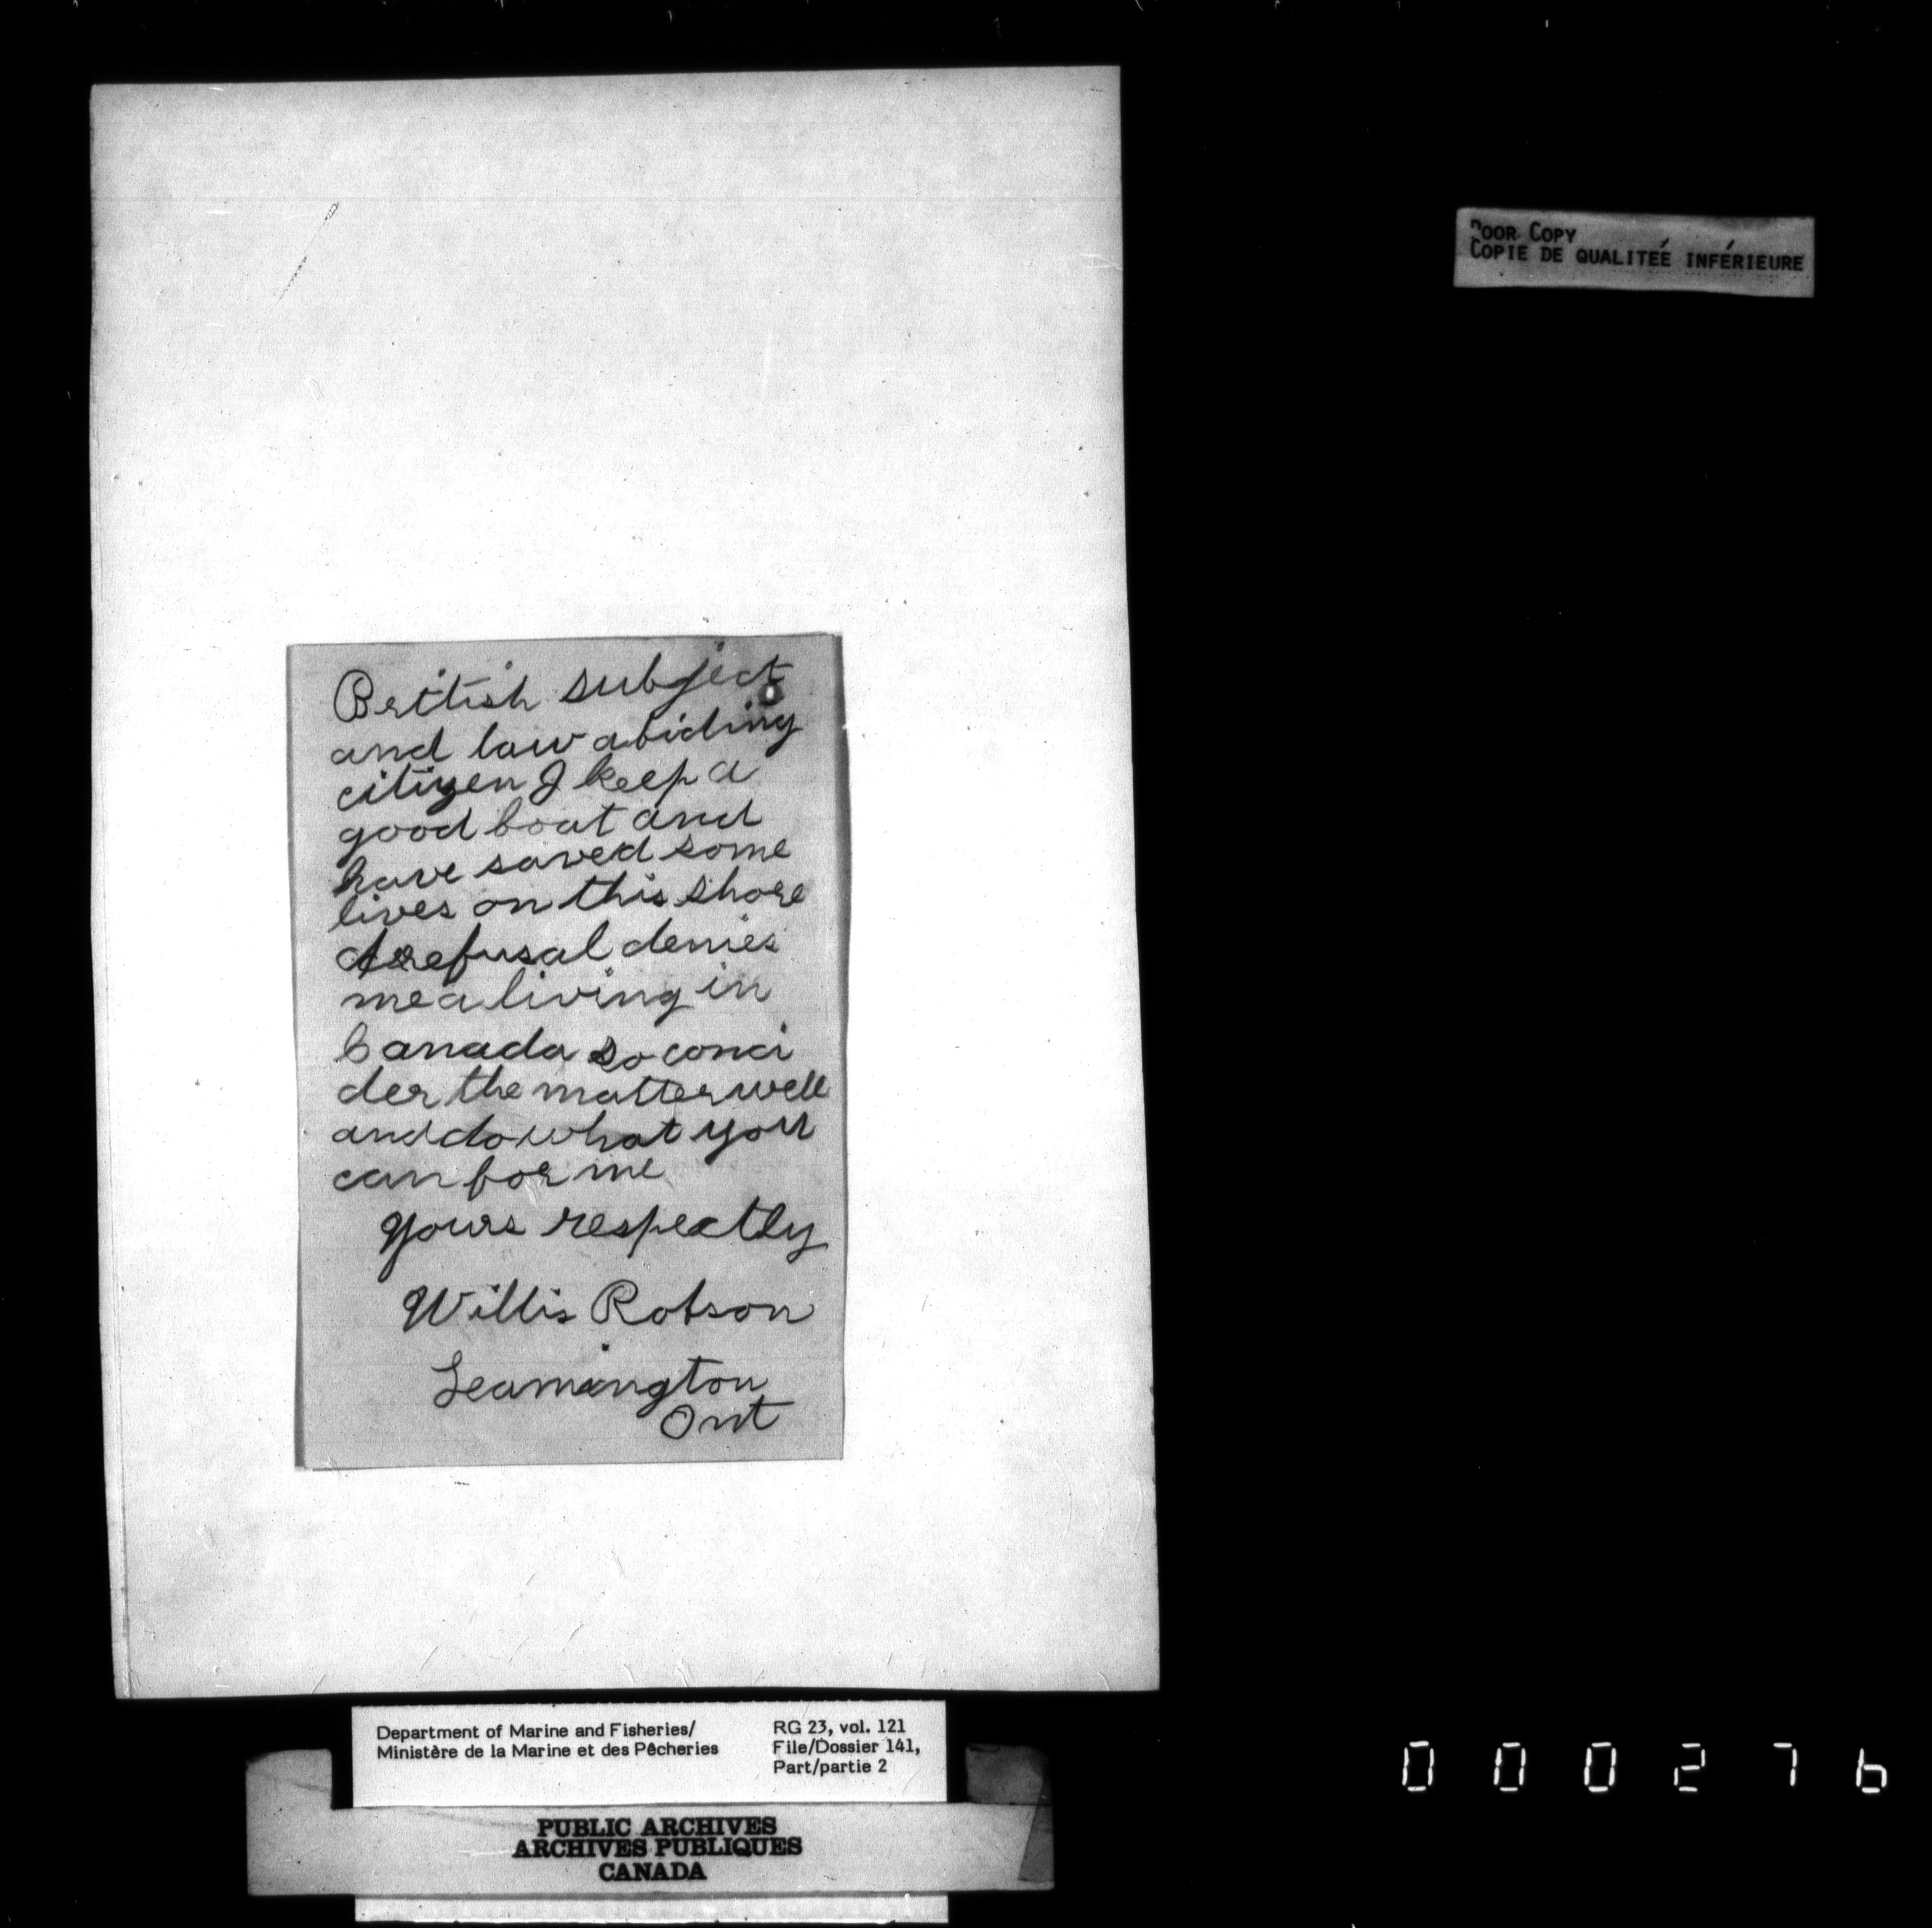 British subject
and law abiding
citizen I keep a
good boat and
have saved some
lives on this shore
A refusal denies
me a living in
Canada so conci
der the matter well
and do what you
can for me
yours respectly
Willis Robson
Leamington
Ont
POOR COPY
COPIE DE QUALITEÉ INFÉRIEURE
Department of Marine and Fisheries/
Ministère de la Marine et des Pêcheries
RG 23, vol. 121
File/Dossier 141,
Part/partie 2
PUBLIC ARCHIVES
ARCHIVES PUBLIQUES
CANADA
000276